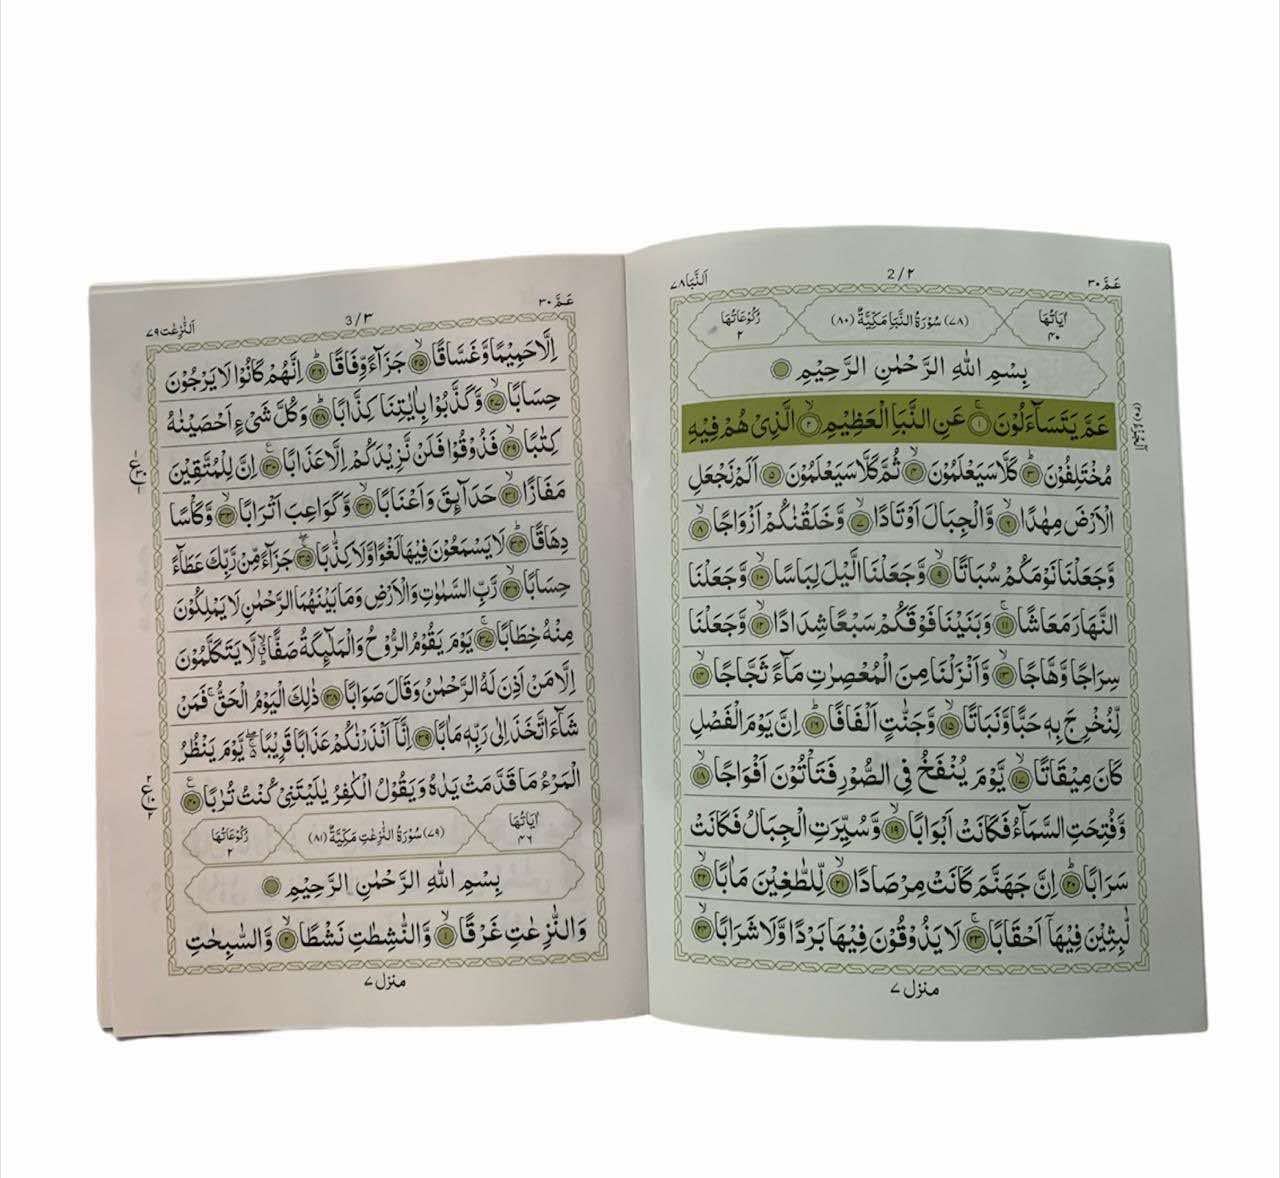 عَمَّ ٣٠
2/٢
اَلنَّبَا ٧٨
اٰيَاتُهَا ٤٠
(٧٨) سُوْرَةُ النَّبَاِ مَكِّيَّةٌ (٨٠)
رُكُوْعَاتُهَا ٢
بِسْمِ اللّٰهِ الرَّحْمٰنِ الرَّحِيْمِ
عَمَّ يَتَسَآءَلُوْنَ ۚ﴿١﴾ عَنِ النَّبَاِ الْعَظِيْمِ ۙ﴿٢﴾ الَّذِىْ هُمْ فِيْهِ
مُخْتَلِفُوْنَ ؕ﴿٣﴾ كَلَّا سَيَعْلَمُوْنَ ۙ﴿٤﴾ ثُمَّ كَلَّا سَيَعْلَمُوْنَ ﴿٥﴾ اَلَمْ نَجْعَلِ
الْاَرْضَ مِهٰدًا ۙ﴿٦﴾ وَّالْجِبَالَ اَوْتَادًا ۪ۙ﴿٧﴾ وَّخَلَقْنٰكُمْ اَزْوَاجًا ۙ﴿٨﴾
وَّجَعَلْنَا نَوْمَكُمْ سُبَاتًا ۙ﴿٩﴾ وَّجَعَلْنَا الَّيْلَ لِبَاسًا ۙ﴿١٠﴾ وَّجَعَلْنَا
النَّهَارَ مَعَاشًا ۪﴿١١﴾ وَبَنَيْنَا فَوْقَكُمْ سَبْعًا شِدَادًا ۙ﴿١٢﴾ وَّجَعَلْنَا
سِرَاجًا وَّهَّاجًا ۪ۙ﴿١٣﴾ وَّاَنْزَلْنَا مِنَ الْمُعْصِرٰتِ مَآءً ثَجَّاجًا ۙ﴿١٤﴾
لِّنُخْرِجَ بِهٖ حَبًّا وَّنَبَاتًا ۙ﴿١٥﴾ وَّجَنّٰتٍ اَلْفَافًا ؕ﴿١٦﴾ اِنَّ يَوْمَ الْفَصْلِ
كَانَ مِيْقَاتًا ۙ﴿١٧﴾ يَّوْمَ يُنْفَخُ فِى الصُّوْرِ فَتَاْتُوْنَ اَفْوَاجًا ۙ﴿١٨﴾
وَّفُتِحَتِ السَّمَآءُ فَكَانَتْ اَبْوَابًا ۙ﴿١٩﴾ وَّسُيِّرَتِ الْجِبَالُ فَكَانَتْ
سَرَابًا ؕ﴿٢٠﴾ اِنَّ جَهَنَّمَ كَانَتْ مِرْصَادًا ۙ﴿٢١﴾ لِّلطّٰغِيْنَ مَاٰبًا ۙ﴿٢٢﴾
لّٰبِثِيْنَ فِيْهَآ اَحْقَابًا ۚ﴿٢٣﴾ لَا يَذُوْقُوْنَ فِيْهَا بَرْدًا وَّلَا شَرَابًا ۙ﴿٢٤﴾
منزل ٧
عَمَّ ٣٠
3/٣
اَلنّٰزِعٰت ٧٩
اِلَّا حَمِيْمًا وَّغَسَّاقًا ۙ﴿٢٥﴾ جَزَآءً وِّفَاقًا ؕ﴿٢٦﴾ اِنَّهُمْ كَانُوْا لَا يَرْجُوْنَ
حِسَابًا ۙ﴿٢٧﴾ وَّكَذَّبُوْا بِاٰيٰتِنَا كِذَّابًا ؕ﴿٢٨﴾ وَكُلَّ شَىْءٍ اَحْصَيْنٰهُ
كِتٰبًا ۙ﴿٢٩﴾ فَذُوْقُوْا فَلَنْ نَّزِيْدَكُمْ اِلَّا عَذَابًا ﴿٣٠﴾ اِنَّ لِلْمُتَّقِيْنَ
مَفَازًا ۙ﴿٣١﴾ حَدَآئِقَ وَاَعْنَابًا ۙ﴿٣٢﴾ وَّكَوَاعِبَ اَتْرَابًا ۙ﴿٣٣﴾ وَّكَاْسًا
دِهَاقًا ؕ﴿٣٤﴾ لَا يَسْمَعُوْنَ فِيْهَا لَغْوًا وَّلَا كِذّٰبًا ۚ﴿٣٥﴾ جَزَآءً مِّنْ رَّبِّكَ عَطَآءً
حِسَابًا ۙ﴿٣٦﴾ رَّبِّ السَّمٰوٰتِ وَالْاَرْضِ وَمَا بَيْنَهُمَا الرَّحْمٰنِ لَا يَمْلِكُوْنَ
مِنْهُ خِطَابًا ۚ﴿٣٧﴾ يَوْمَ يَقُوْمُ الرُّوْحُ وَالْمَلٰٓئِكَةُ صَفًّا ۙؕ لَّا يَتَكَلَّمُوْنَ
اِلَّا مَنْ اَذِنَ لَهُ الرَّحْمٰنُ وَقَالَ صَوَابًا ﴿٣٨﴾ ذٰلِكَ الْيَوْمُ الْحَقُّ ۚ فَمَنْ
شَآءَ اتَّخَذَ اِلٰى رَبِّهٖ مَاٰبًا ﴿٣٩﴾ اِنَّآ اَنْذَرْنٰكُمْ عَذَابًا قَرِيْبًا ۖۚ يَّوْمَ يَنْظُرُ
الْمَرْءُ مَا قَدَّمَتْ يَدٰهُ وَيَقُوْلُ الْكٰفِرُ يٰلَيْتَنِىْ كُنْتُ تُرٰبًا ﴿٤٠﴾
اٰيَاتُهَا ٤٦
(٧٩) سُوْرَةُ النّٰزِعٰتِ مَكِّيَّةٌ (٨١)
رُكُوْعَاتُهَا ٢
بِسْمِ اللّٰهِ الرَّحْمٰنِ الرَّحِيْمِ
وَالنّٰزِعٰتِ غَرْقًا ۙ﴿١﴾ وَّالنّٰشِطٰتِ نَشْطًا ۙ﴿٢﴾ وَّالسّٰبِحٰتِ
منزل ٧